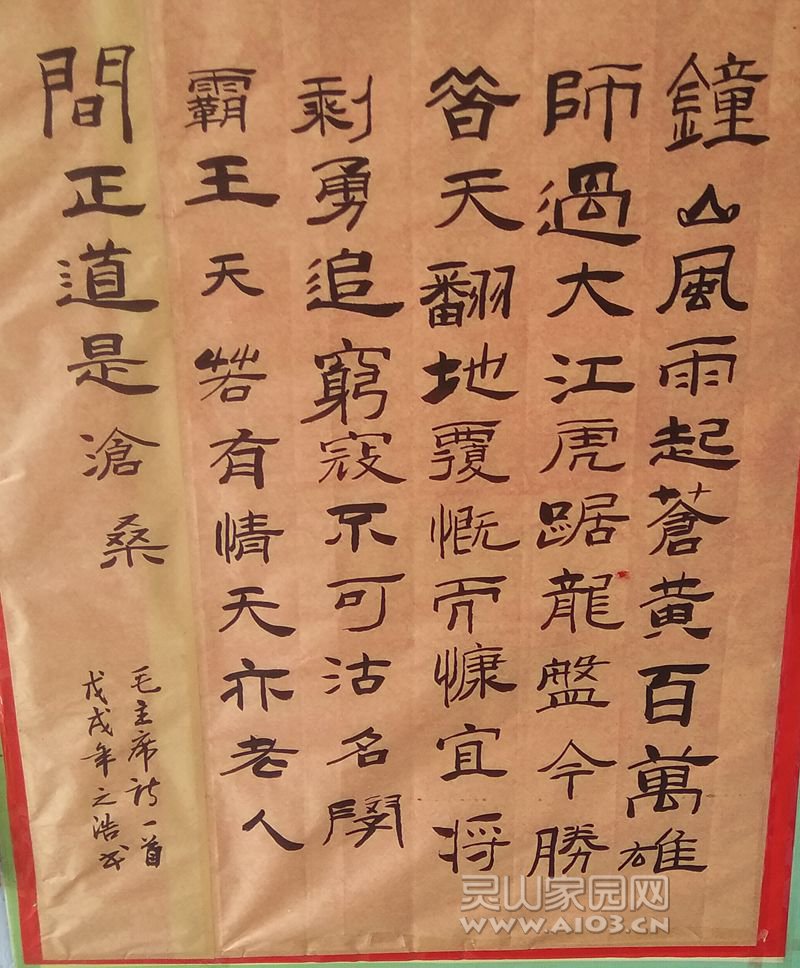 鐘山風雨起蒼黃百萬雄
師過大江虎踞龍盤今勝
昔天翻地覆慨而慷宜将
剩勇追窮寇不可沽名學
霸王天若有情天亦老人
間正道是滄桑
毛主席诗一首
戊戌年之浩书
灵山家园网
WWW.A103.CN